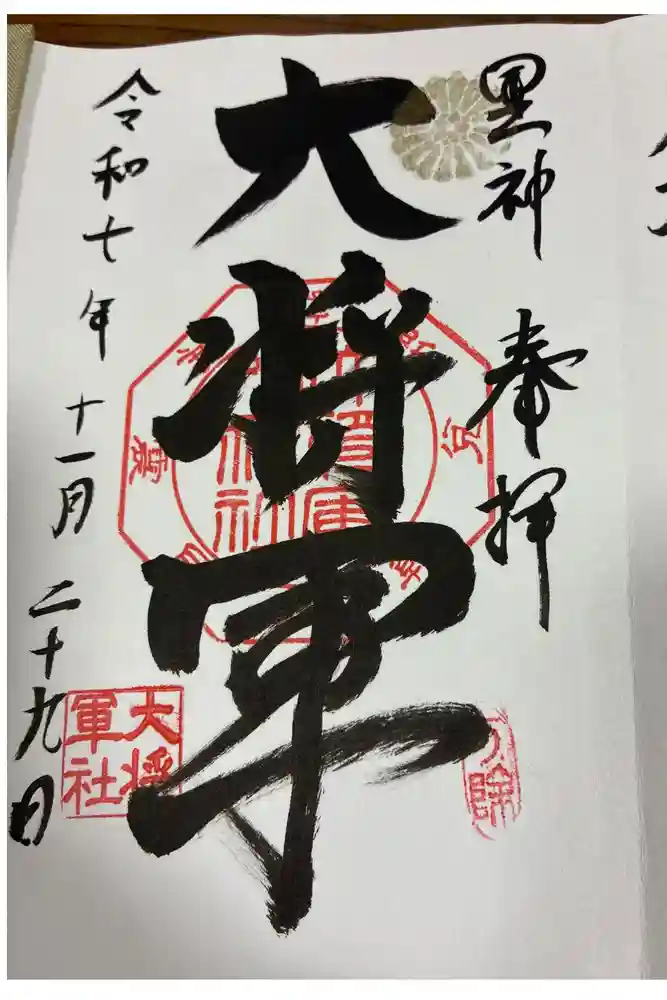 黒神 奉拝
大将軍
令和七年十一月二十九日
大将
軍社
除